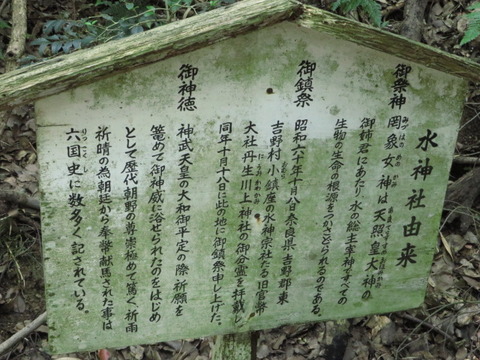 水神社由来
御祭神 罔象女神は天照皇大神の
御姉君にあたり、水の総主宰神ですべての
生物の生命の根源をつかさどられるのである。
御鎮祭 昭和六十年十月八日奈良県吉野郡東
吉野村小鎮座の水神宗社たる旧官幣
大社丹生川上神社の御分霊を拝載し
同年十月十八日に此の地に御鎮祭申し上げた。
御神徳 神武天皇の大和御平定の際祈願を
篭めて御神威を浴せられたのをはじめ
として歴代朝野の尊崇極めて篤く、祈雨
祈晴の為朝廷から奉幣献馬された事は
六国史に数多く記されている。